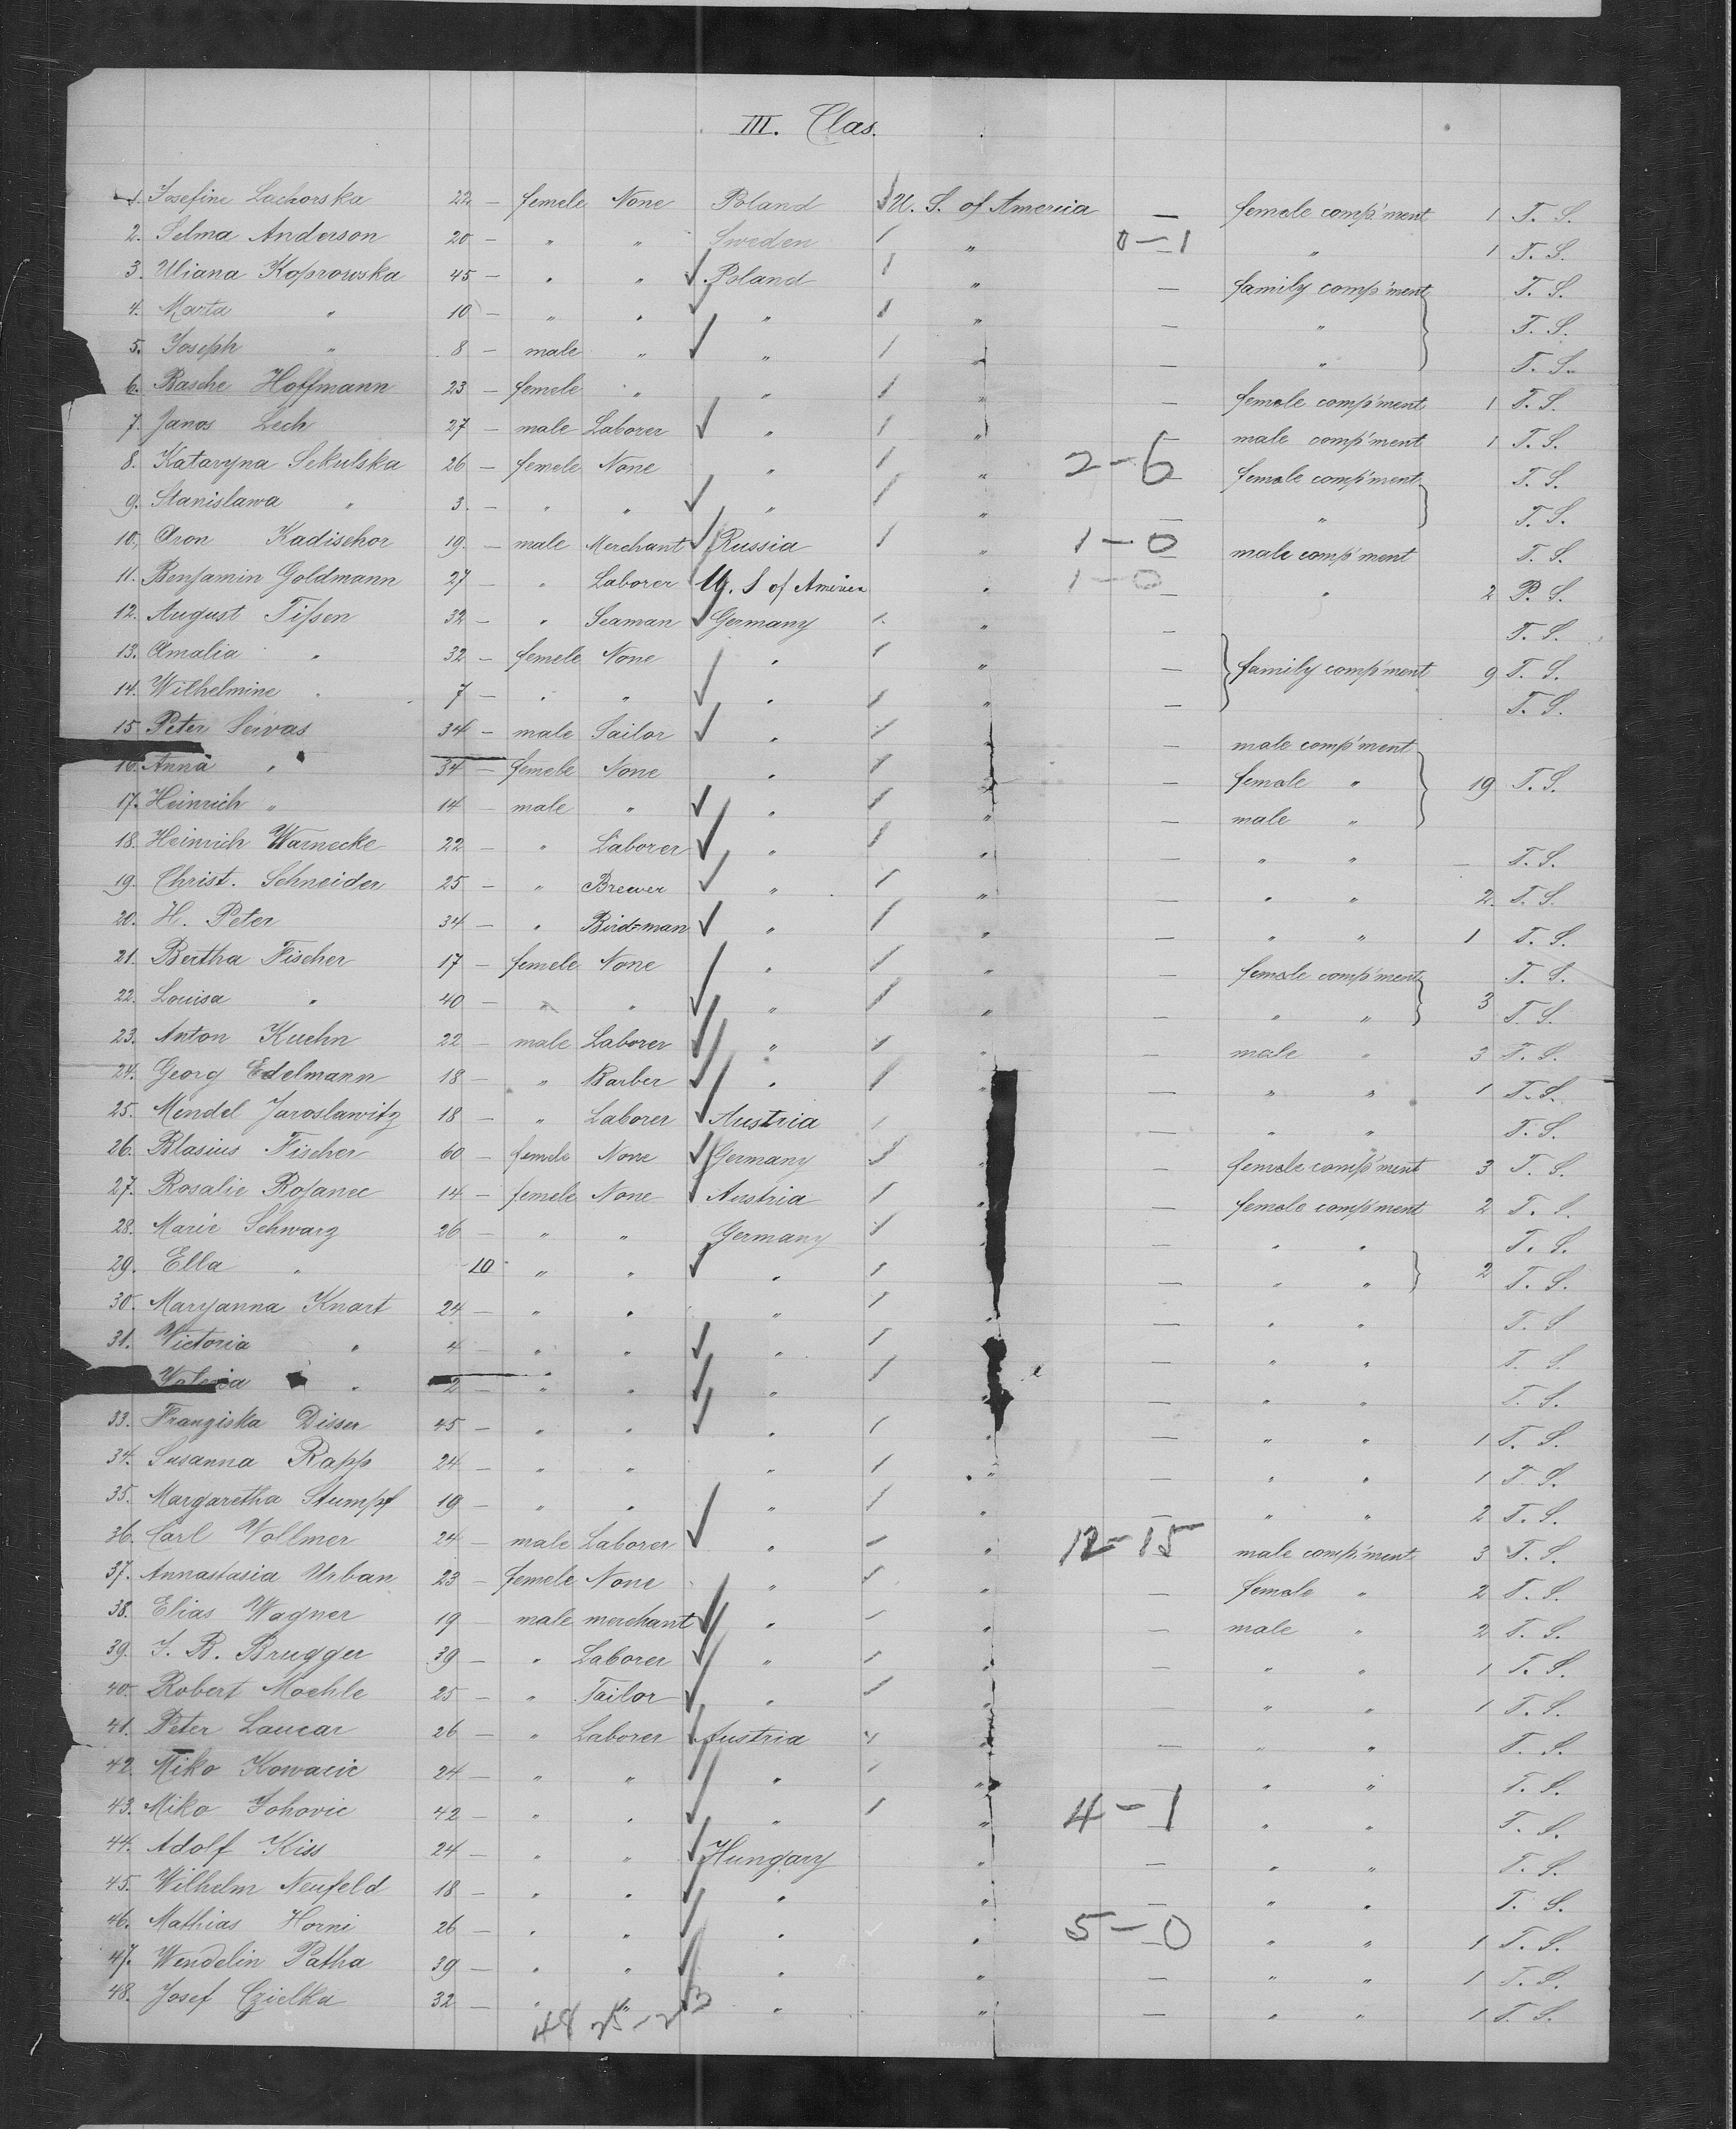 III. Clas.
1. Josefine Lachorska 22 – femele None Poland U. S. of America — female comp'ment 1 T. S.
2. Selma Anderson 20 – " " Sweden " 0–1 " 1 T. S.
3. Uliana Koprowska 45 – " " Poland " — family comp'ment T. S.
4. Marta " 10 – " " " " — " T. S.
5. Joseph " 8 – male " " " — " T. S.
6. Basche Hoffmann 23 – femele " " " — female comp'ment 1 T. S.
7. Janos Lech 27 – male Laborer " " — male comp'ment 1 T. S.
8. Kataryna Sekulska 26 – femele None " " 2–6 female comp'ment T. S.
9. Stanislawa " 3. – " " " " — " T. S.
10. Aron Kadischor 19. – male Merchant Russia " 1–0 male comp'ment T. S.
11. Benjamin Goldmann 27 – " Laborer U. S of America " 1–0 " 2 P. S.
12. August Tißen 32 – " Seaman Germany " — T. S.
13. Amalia " 32 – femele None " " — family comp'ment 9 T. S.
14. Wilhelmine " 7 – " " " " — T. S.
15 Peter Servas 34 – male Sailor " " — male comp'ment
16. Anna " 34 – femele None " " — female " 19 T. S.
17. Heinrich " 14 – male " " " — male "
18. Heinrich Warnecke 22 – " Laborer " " — " " – T. S.
19. Christ. Schneider 25 – " Brewer " " — " " 2. T. S.
20. H. Peter 34 – " Bird-man " " — " " 1 T. S.
21. Bertha Fischer 17 – femele None " " — female comp'ment T. S.
22. Louisa " 40 – " " " " — " " 3 T. S.
23. Anton Kuehn 22 – male Laborer " " — male " 3 T. S.
24. Georg Edelmann 18 – " Barber " " — " " 1 T. S.
25. Mendel Jaroslawitz 18 – " Laborer Austria — " " T. S.
26. Blasius Fischer 60 – femele None Germany " — female comp'ment 3 T. S.
27. Rosalie Rosanec 14 – femele None Austria " — female comp'ment 2 T. S.
28. Marie Schwarz 26 – " " Germany — " " T. S.
29. Ella " 10 " " " — " " 2 T. S.
30. Maryanna Knart 24 – " " " " — " " T. S
31. Victoria " 4 – " " " — " " T. S.
Valeria " 2 – " " " " — " " T. S.
33. Franziska Disser 45 – " " " " — " " 1 T. S.
34. Susanna Rapp 24 – " " " " — " " 1 T. S.
35. Margaretha Stumpf 19 – " " " " — " " 2 T. S.
36. Carl Vollmer 24 – male Laborer " " 12–15 male comp'ment 3 T. S.
37. Annastasia Urban 23 – femele None " " — female " 2 T. S.
38. Elias Wagner 19 – male merchant " " — male " 2 T. S.
39. J. B. Brugger 39 – " Laborer " " — " " 1 T. S.
40. Robert Moehle 25 – " Tailor " " — " " 1 T. S.
41. Peter Laucar 26 – " Laborer Austria " — " " T. S.
42. Miko Kowacic 24 – " " " " " " T. S.
43. Miko Johovic 42 – " " " " 4–1 " " T. S.
44. Adolf Kiss 24 – " " Hungary " — " " T. S.
45. Wilhelm Neufeld 18 – " " " " — " " T. S.
46. Mathias Horni 26 – " " " " 5–0 " " 1 T. S.
47. Wendelin Patha 39 – " " " " — " " 1 T. S.
48. Josef Czielka 32 – " " " " — " " 1 T. S.
48 25–23